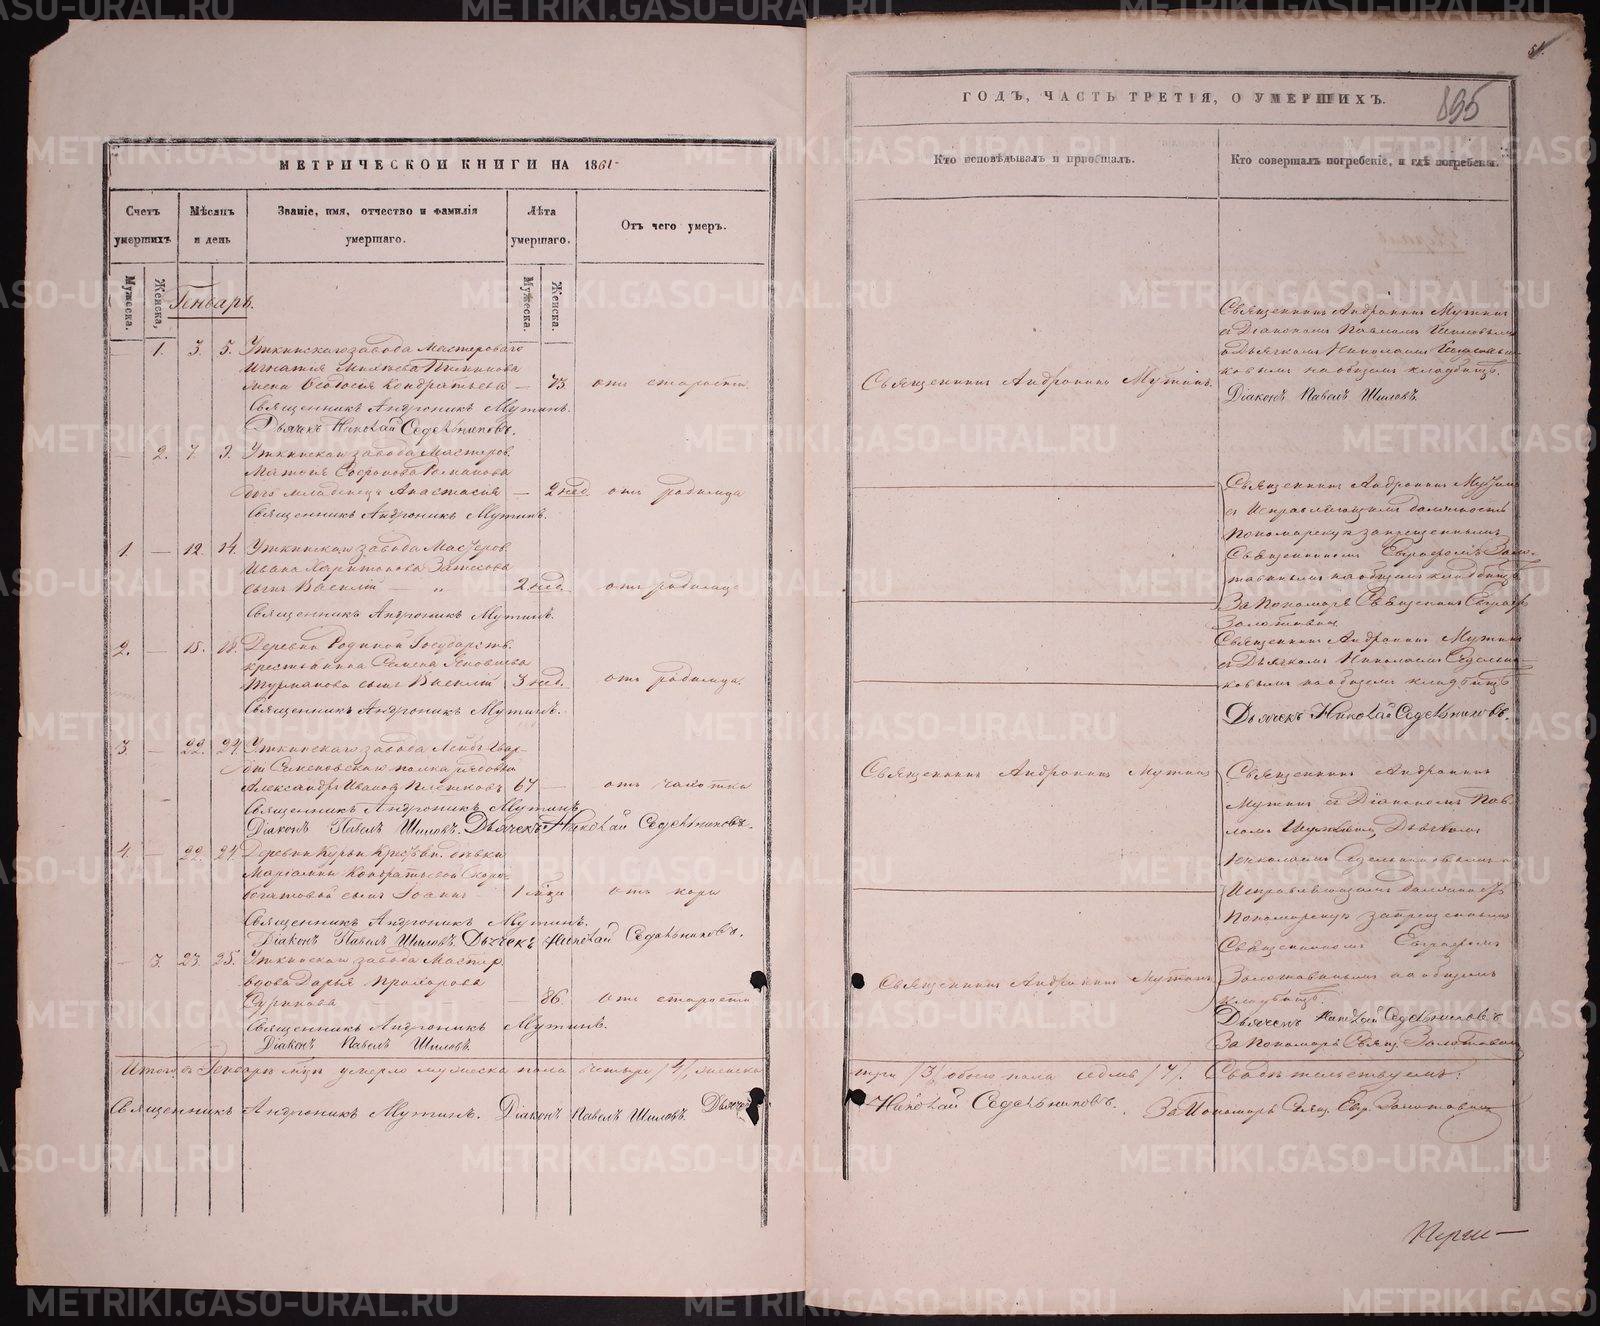 МЕТРИЧЕСКОЙ КНИГИ НА 1861
Счетъ умершихъ
Мѣсяцъ и день
Званіе, имя, отчество и фамилія умершаго.
Лѣта умершаго.
Отъ чего умеръ.
Мужеска.
Женска,
Мужеска.
Женска.
Генварь.
1. 3. 5. Уткинскаго завода Мастероваго
Игнатія
жена Ѳеодосія Кондратьева — 73. отъ старости.
Священникъ Андроникъ Мутинъ.
Дьячекъ Николай Седельниковъ.
— 2. 7. 9. Уткинскаго завода Мастеров.
Матѳея Софронова Романова
дочь младенецъ Анастасія — 2 нед. отъ родимца
Священникъ Андроникъ Мутинъ.
1. — 12. 14. Уткинскаго завода Мастеров.
Ивана Харитонова
сынъ Василій 2 нед. отъ родимца
Священникъ Андроникъ Мутинъ.
2. — 15. 18. Деревни Родиной Государств.
крестьянина Семена
сынъ Василій 3 нед. отъ родимца.
Священникъ Андроникъ Мутинъ.
3. — 22. 24. Уткинскаго завода Лейбъ Гвар-
діи Семеновскаго полка рядовой
Александръ Ивановъ 67 — отъ чахотки
Священникъ Андроникъ Мутинъ,
Діаконъ Павелъ Шиловъ. Дьячекъ Николай Седельниковъ.
4. — 22. 24. Деревни Курьи Крестьян. дѣвки
Маріамны Кондратьевой
сынъ Іоаннъ 1 мѣся отъ кори
Священникъ Андроникъ Мутинъ.
Діаконъ Павелъ Шиловъ. Дьячекъ Николай Седельниковъ.
— 3. 23. 25. Уткинскаго завода Мастер.
вдова Дарья Прохорова
86. отъ старости
Священникъ Андроникъ Мутинъ.
Діаконъ Павелъ Шиловъ.
Итого въ Генварѣ м-цѣ умерло мужеска пола четыре /4/, женска
Священникъ Андроникъ Мутинъ. Діаконъ Павелъ Шиловъ. Дьячекъ
51.
ГОДЪ, ЧАСТЬ ТРЕТІЯ, О УМЕРШИХЪ.
895
Кто исповѣдывалъ и пріобщалъ.
Кто совершалъ погребеніе, и гдѣ погребены.
Священникъ Андроникъ Мутинъ.
Священникъ Андроникъ Мутинъ
съ Діакономъ Павломъ Шиловымъ
и Дьячкомъ Николаемъ Седельни-
ковымъ на общемъ кладбищѣ.
Діаконъ Павелъ Шиловъ.
Священникъ Андроникъ Мутинъ
съ Исправляющимъ должность
Пономарскую запрещеннымъ
Священникомъ Евграфомъ Золо-
тавинымъ на общемъ кладбищѣ
За Пономаря Священникъ Евграфъ
Золотавинъ
Священникъ Андроникъ Мутинъ
съ Дьячкомъ Николаемъ Седельни-
ковымъ на общемъ кладбищѣ
Дьячекъ Николай Седельниковъ.
Священникъ Андроникъ Мутинъ
Священникъ Андроникъ
Мутинъ съ Діакономъ Пав-
ломъ Шиловымъ Дьячкомъ
Николаемъ Седельниковымъ и
Исправляющимъ должность
Пономарскую запрещеннымъ
Священникомъ Евграфомъ
Священникъ Андроникъ Мутинъ
Золотавинымъ на общемъ
кладбищѣ.
Дьячекъ Николай Седельниковъ
За Пономаря Свящ. Золотавинъ
три /3/, обоего пола седмь /7/. Свидѣтельствуемъ:
Николай Седельниковъ. За Пономаря Свящ. Евг. Золотавинъ